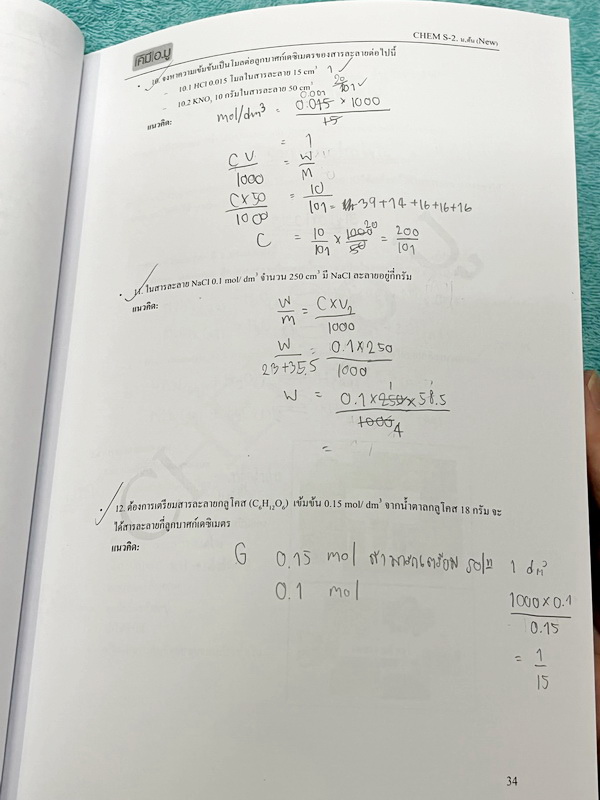 เคมี อ.มู
CHEM S-2. ม.ต้น (New)
10. จงหาความเข้มข้นเป็นโมลต่อลูกบาศก์เดซิเมตรของสารละลายต่อไปนี้
- 10.1 HCl 0.015 โมลในสารละลาย 15 cm³ 1 ✓
- 10.2 KNO₃ 10 กรัมในสารละลาย 50 cm³ 20/101 ✓
แนวคิด:
mol/dm³ = 0.015 × 1000 / 15
0.001
= 1
CV/1000 = W/M
C×50/1000 = 10/101 = 39+14+16+16+16
C = 10/101 × 1000/50 20 = 200/101
11. ในสารละลาย NaCl 0.1 mol/ dm³ จำนวน 250 cm³ มี NaCl ละลายอยู่กี่กรัม
แนวคิด:
W/m = C×V₂/1000
W/23+35.5 = 0.1×250/1000
W = 0.1×250×58.5/1000 4
=
12. ต้องการเตรียมสารละลายกลูโคส (C₆H₁₂O₆) เข้มข้น 0.15 mol/ dm³ จากน้ำตาลกลูโคส 18 กรัม จะ
ได้สารละลายกี่ลูกบาศก์เดซิเมตร
แนวคิด:
G 0.15 mol สามารถเตรียม soln 1 dm³
0.1 mol 1000×0.1/0.15
= 1/15
34